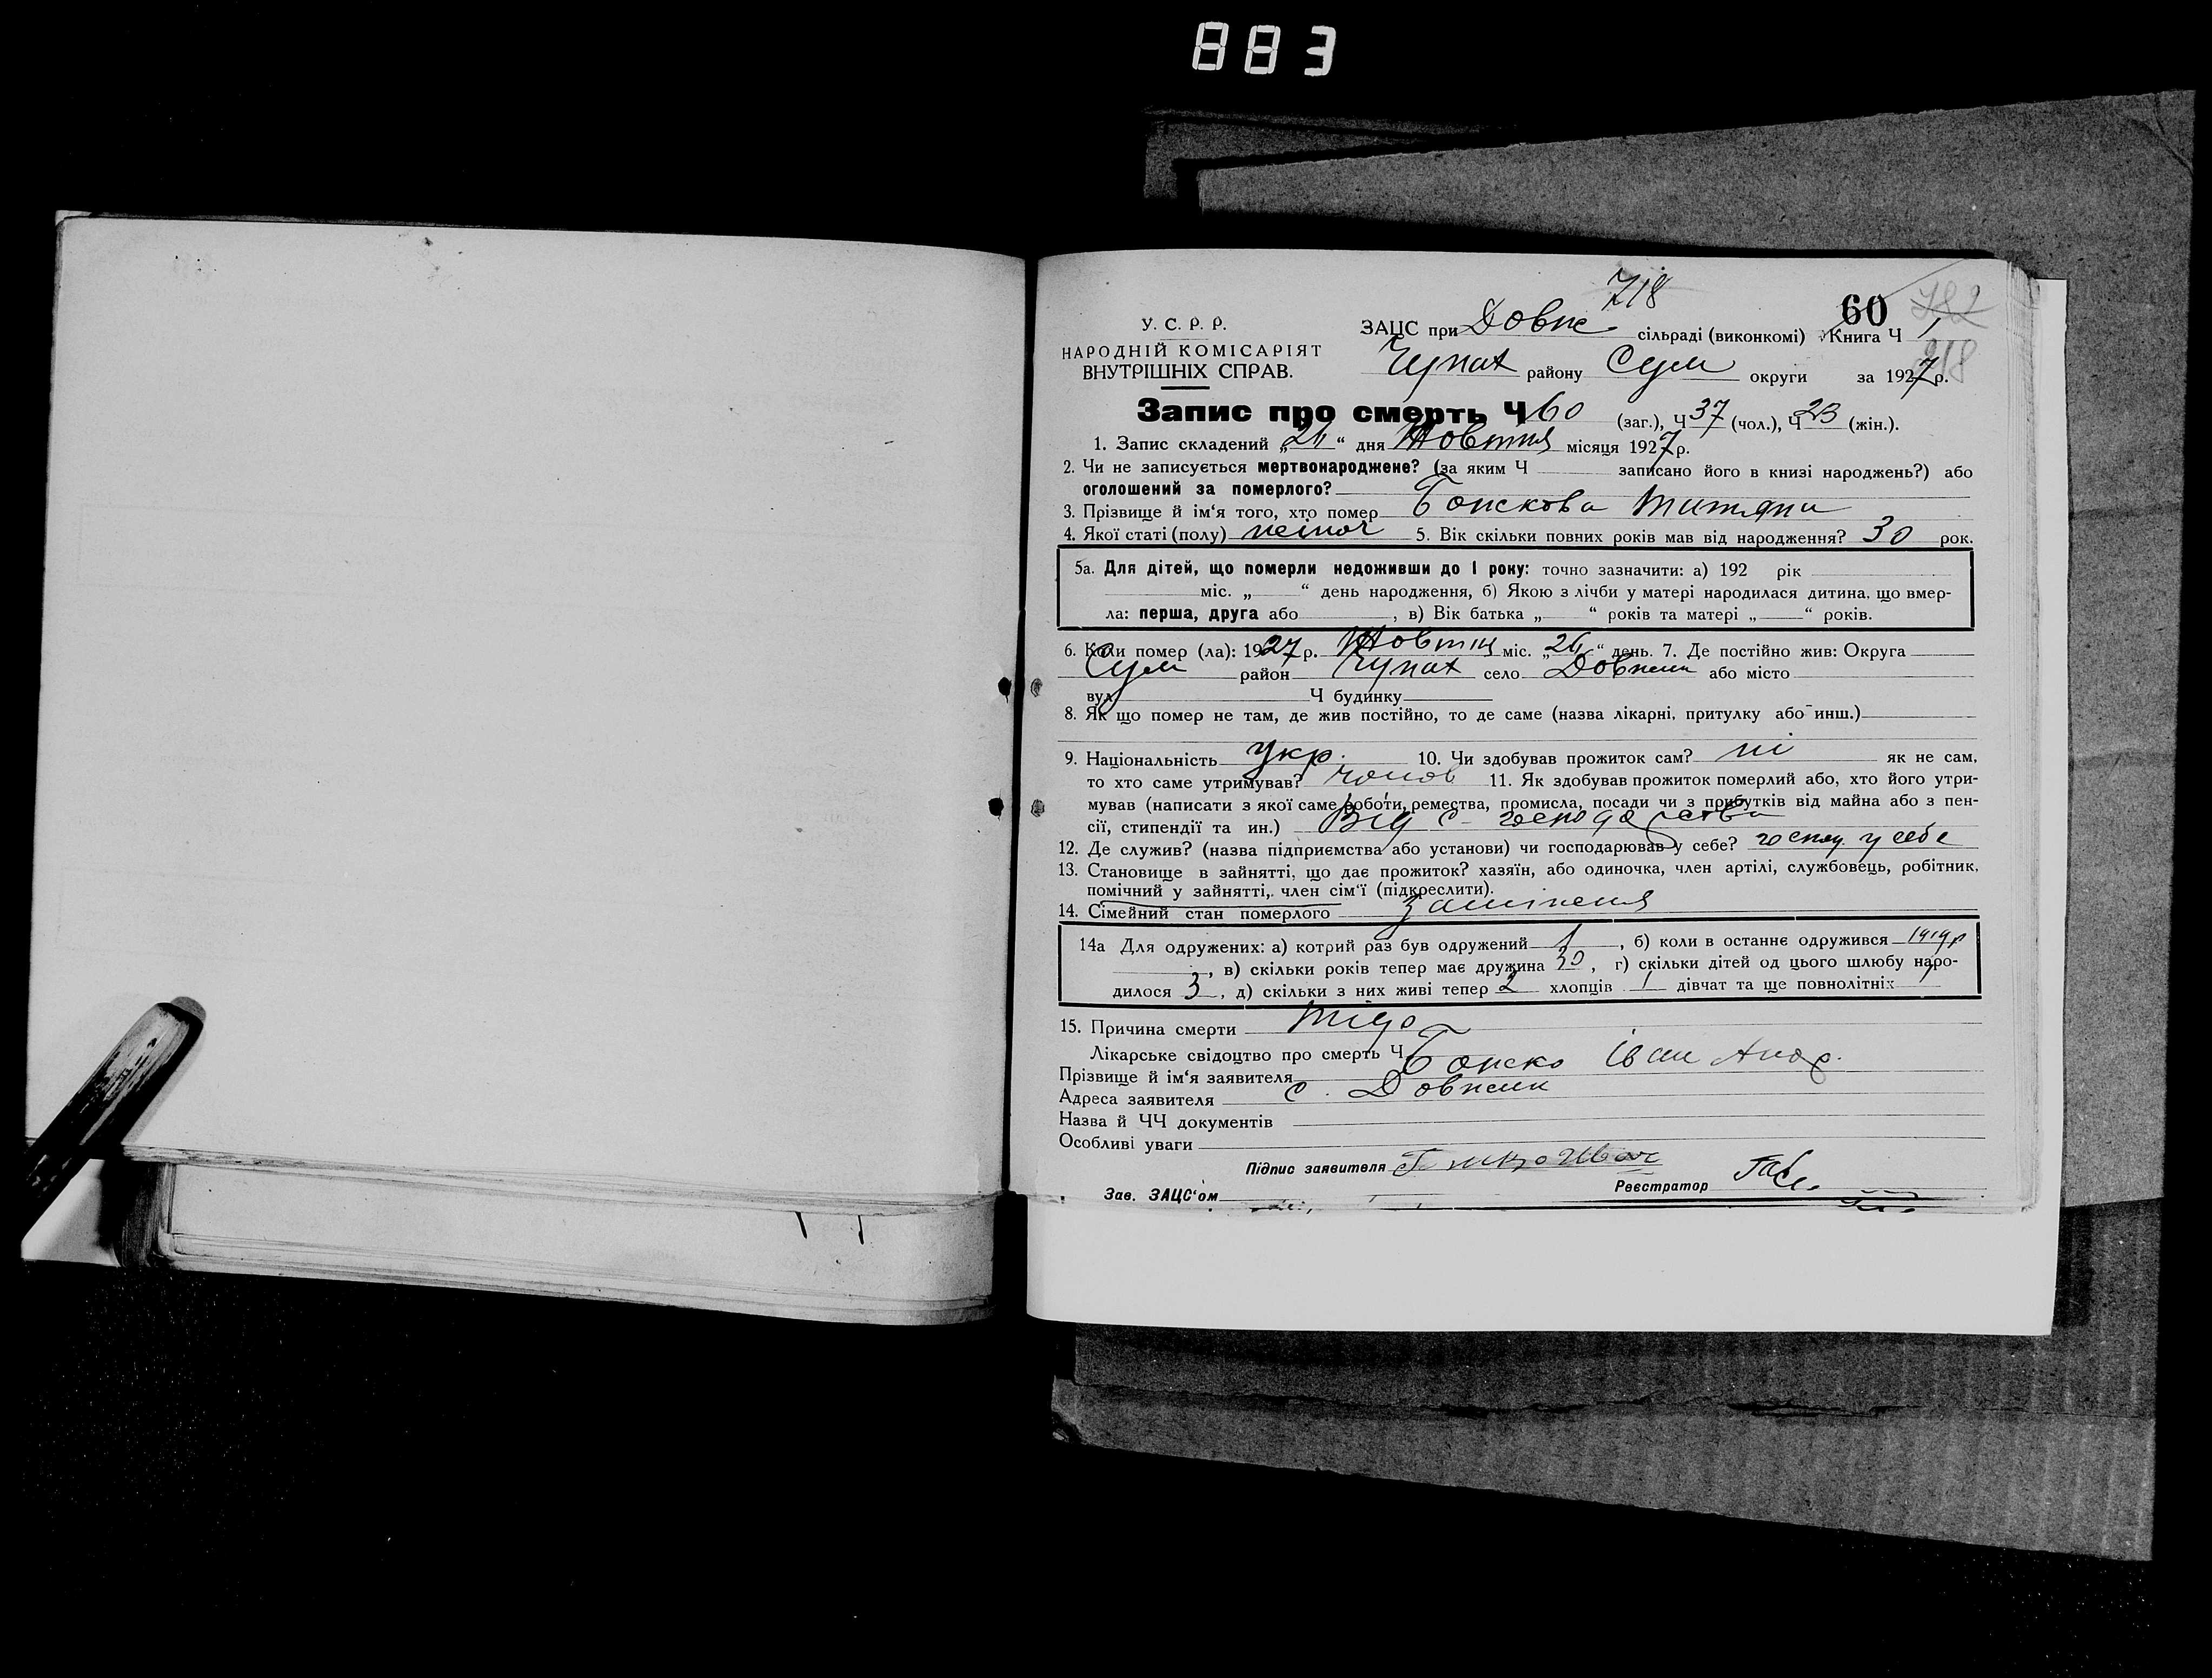 883
718
60 782
У. С. Р. Р. ЗАЦС при Довж сільраді (виконкомі) Книга Ч 1
НАРОДНІЙ КОМІСАРІЯТ
ВНУТРІШНІХ СПРАВ.
Чупах району Сум округи за 1927 р.
Запис про смерть Ч 60 (заг.), Ч 37 (чол.), Ч 23 (жін.).
1. Запис складений „26“ дня Жовтня місяця 1927 р.
2. Чи не записується мертвонароджене? (за яким Ч записано його в книзі народжень?) або
оголошений за померлого?
3. Прізвище й ім‘я того, хто помер
4. Якої статі (полу) жіноч 5. Вік скільки повних років мав від народження? 30 рок.
5а. Для дітей, що померли недоживши до 1 року: точно зазначити: а) 192 рік
міс. „ “ день народження, б) Якою з лічби у матері народилася дитина, що вмер-
ла: перша, друга або , в) Вік батька „ “ років та матері „ “ років.
6. Коли помер (ла): 1927 р. Жовтня міс. „26“ день. 7. Де постійно жив: Округа
Сум район Чупах село Довжик або місто
вул Ч будинку
8. Як що помер не там, де жив постійно, то де саме (назва лікарні, притулку або инш.)
9. Національність укр. 10. Чи здобував прожиток сам? ні як не сам,
то хто саме утримував? чолов 11. Як здобував прожиток померлий або, хто його утри-
мував (написати з якої саме роботи, ремества, промисла, посади чи з прибутків від майна або з пен-
сії, стипендії та ин.) Від с – господарства
12. Де служив? (назва підприємства або установи) чи господарював у себе? госпд. у себе
13. Становище в зайнятті, що дає прожиток? хазяїн, або одиночка, член артілі, службовець, робітник,
помічний у зайнятті, член сім‘ї (підкреслити).
14. Сімейний стан померлого заміжня
14а Для одружених: а) котрий раз був одружений 1 , б) коли в останнє одружився 1919 р
, в) скільки років тепер має дружина 30 , г) скільки дітей од цього шлюбу наро-
дилося 3 , д) скільки з них живі тепер 2 хлопців 1 дівчат та ще повнолітніх
15. Причина смерти
Лікарське свідоцтво про смерть Ч
Прізвище й ім‘я заявителя Іван Андр.
Адреса заявителя с. Довжик
Назва й ЧЧ документів
Особливі уваги
Підпис заявителя
Зав. ЗАЦС‘ом Реєстратор